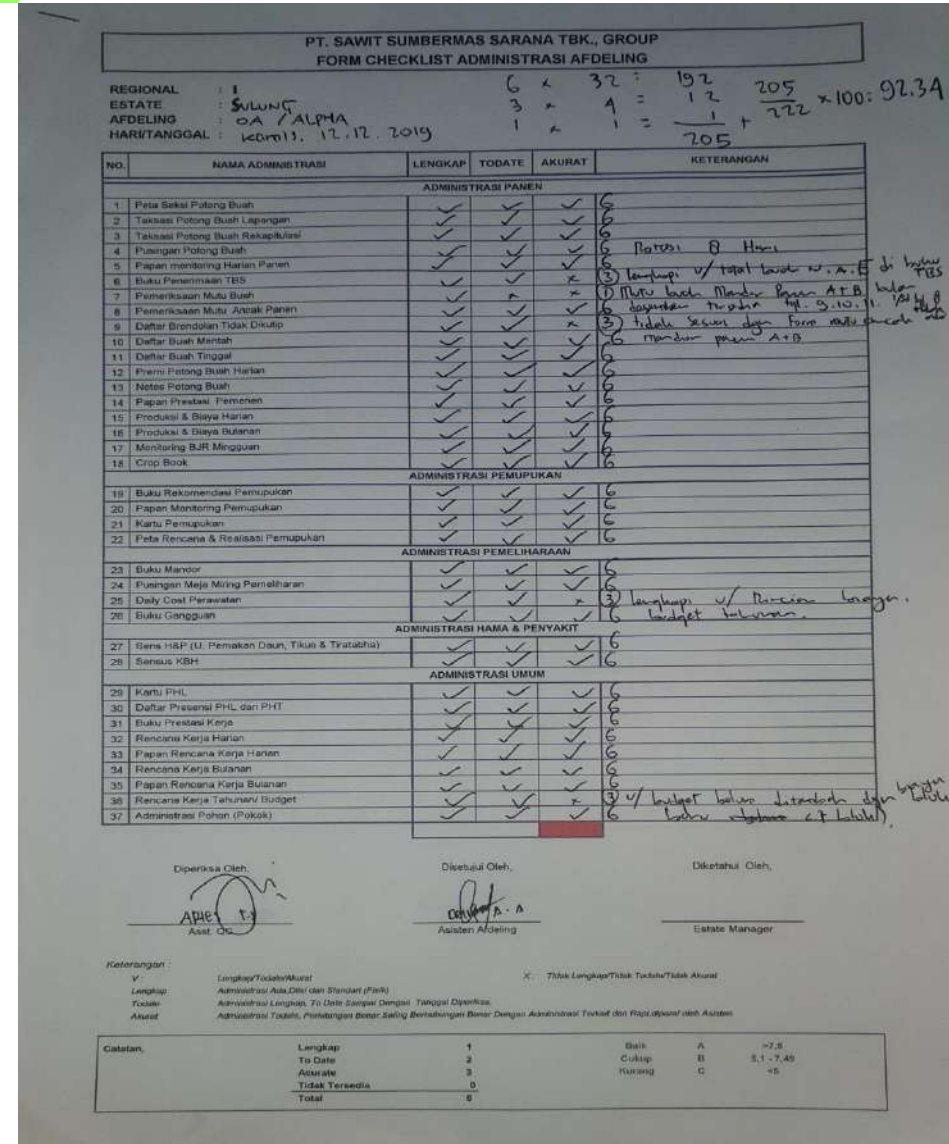 PT. SAWIT SUMBERMAS SARANA TBK., GROUP
FORM CHECKLIST ADMINISTRASI AFDELING
REGIONAL : I
ESTATE : SULUNG
AFDELING : OA / ALPHA
HARI/TANGGAL : Kamis, 12.12.2019
6 x 32 = 192
3 x 4 = 12
1 x 1 = 1 +
205
205/222 x 100 : 92.34
NO. NAMA ADMINISTRASI LENGKAP TODATE AKURAT KETERANGAN
ADMINISTRASI PANEN
1 Peta Seksi Potong Buah ✓ ✓ ✓ 6
2 Taksasi Potong Buah Lapangan ✓ ✓ ✓ 6
3 Taksasi Potong Buah Rekapitulasi ✓ ✓ ✓ 6
4 Pusingan Potong Buah ✓ ✓ ✓ 6 Rotasi 8 Hari
5 Papan monitoring Harian Panen ✓ ✓ ✓ 6
6 Buku Penerimaan TBS ✓ ✓ x (3) lengkapi u/ total N.A.E di buku TBS
7 Pemeriksaan Mutu Buah ✓ x x (1) Mutu buah Mandor Panen A+B
8 Pemeriksaan Mutu Ancak Panen ✓ ✓ ✓ 6 tgl. 9.10.11.
9 Daftar Brondolan Tidak Dikutip ✓ ✓ x (3) tidak sesuai dgn Form mutu ancak
10 Daftar Buah Mentah ✓ ✓ ✓ 6 mandor panen A+B
11 Daftar Buah Tinggal ✓ ✓ ✓ 6
12 Premi Potong Buah Harian ✓ ✓ ✓ 6
13 Notes Potong Buah ✓ ✓ ✓ 6
14 Papan Prestasi Pemanen ✓ ✓ ✓ 6
15 Produksi & Biaya Harian ✓ ✓ ✓ 6
16 Produksi & Biaya Bulanan ✓ ✓ ✓ 6
17 Monitoring BJR Mingguan ✓ ✓ ✓ 6
18 Crop Book ✓ ✓ ✓ 6
ADMINISTRASI PEMUPUKAN
19 Buku Rekomendasi Pemupukan ✓ ✓ ✓ 6
20 Papan Monitoring Pemupukan ✓ ✓ ✓ 6
21 Kartu Pemupukan ✓ ✓ ✓ 6
22 Peta Rencana & Realisasi Pemupukan ✓ ✓ ✓ 6
ADMINISTRASI PEMELIHARAAN
23 Buku Mandor ✓ ✓ ✓ 6
24 Pusingan Meja Miring Pemeliharan ✓ ✓ ✓ 6
25 Daily Cost Perawatan ✓ ✓ x (3) lengkapi u/ Rincian
26 Buku Gangguan ✓ ✓ ✓ 6 budget tahunan.
ADMINISTRASI HAMA & PENYAKIT
27 Sens H&P (U. Pemakan Daun, Tikus & Tiratabha) ✓ ✓ ✓ 6
28 Sensus KBH ✓ ✓ ✓ 6
ADMINISTRASI UMUM
29 Kartu PHL ✓ ✓ ✓ 6
30 Daftar Presensi PHL dan PHT ✓ ✓ ✓ 6
31 Buku Prestasi Kerja ✓ ✓ ✓ 6
32 Rencana Kerja Harian ✓ ✓ ✓ 6
33 Papan Rencana Kerja Harian ✓ ✓ ✓ 6
34 Rencana Kerja Bulanan ✓ ✓ ✓ 6
35 Papan Rencana Kerja Bulanan ✓ ✓ ✓ 6
36 Rencana Kerja Tahunan/ Budget ✓ ✓ x (3) u/ budget belum
37 Administrasi Pohon (Pokok) ✓ ✓ ✓ 6
Diperiksa Oleh, Disetujui Oleh, Diketahui Oleh,
Asisten Afdeling Estate Manager
Keterangan :
V : Lengkap/Todate/Akurat X : Tidak Lengkap/Tidak Todate/Tidak Akurat
Lengkap Administrasi Ada,Diisi dan Standart (Fisik)
Todate Administrasi Lengkap, To Date Sampai Dengan Tanggal Diperiksa.
Akurat Administrasi Todate, Perhitungan Benar Saling Berhubungan Benar Dengan Administrasi Terkait dan Rapi,diparaf oleh Asisten
Catatan, Lengkap 1 Baik A >7,5
To Date 2 Cukup B 5,1 - 7,49
Acurate 3 Kurang C <5
Tidak Tersedia 0
Total 6